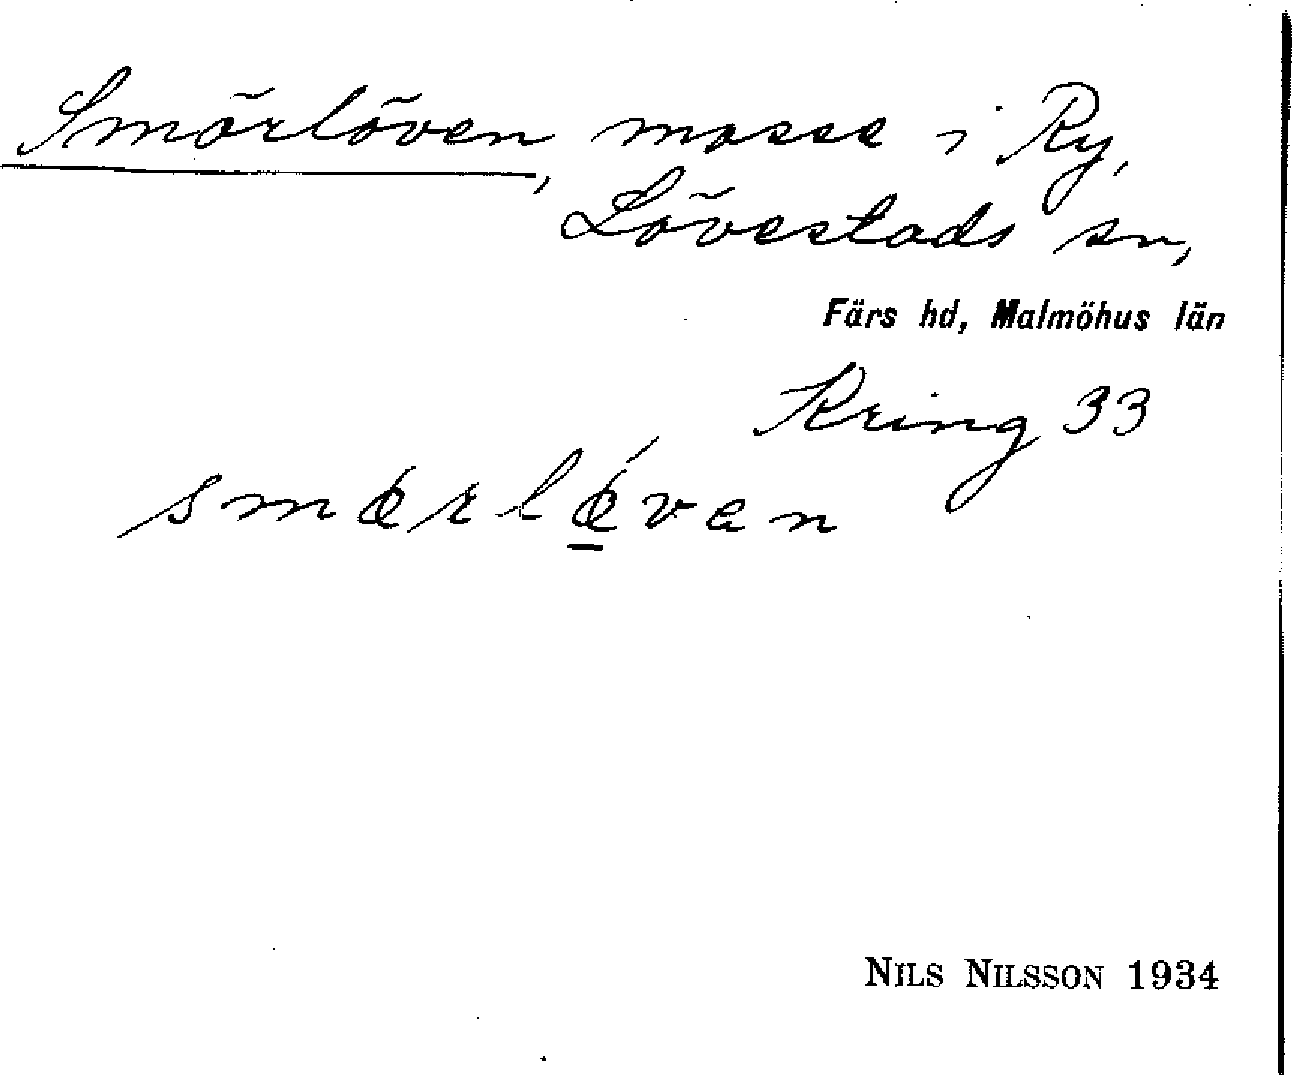 Smörlöven, mosse i Ry,
Lövestads sn,
Färs hd, Malmöhus län
Kring 33
smørlǿ̱ven
NILS NILSSON 1934